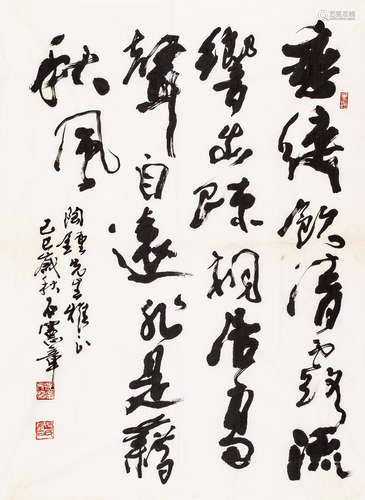 垂緌飲清露流
響出疎桐居高
聲自遠非是藉
秋風
陶鍾先生雅正
己巳歲秋石憲章